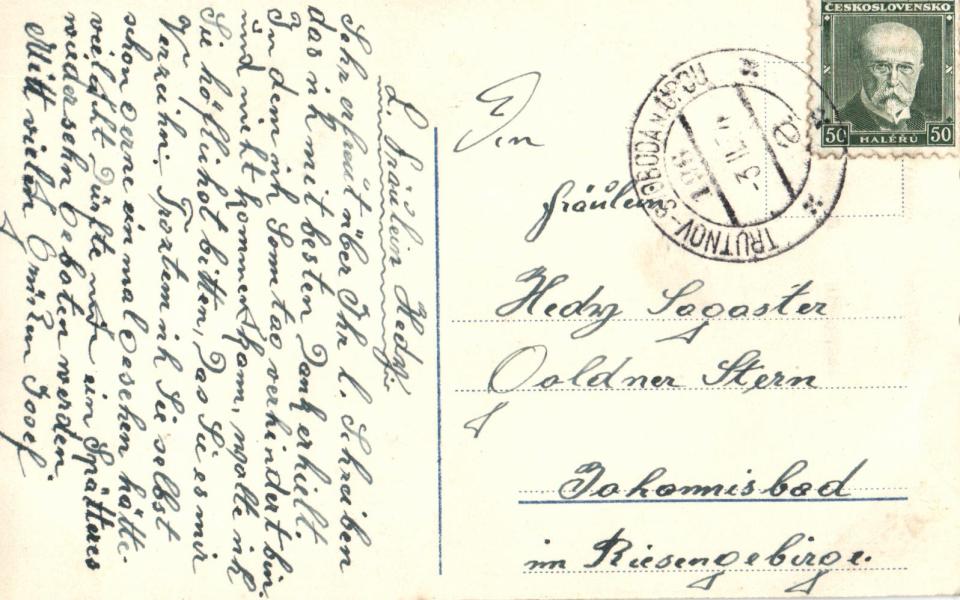 L. Fräulein Hedy!
Sehr erfreut über Ihr l. Schreiben
das ich mit besten Dank erhielt.
In dem ich Sonntag verhindert bin
und nicht kommen kann, wollte ich
Sie höflichst bitten, das Sie es mir
Verzeihn. Troztem ich Sie selbst
schon gerne einmal gesehen hätte.
vieleicht dürfte mir ein Späteres
wiedersehn geboten werden.
Mitt vielen Grüßen Josef
An
Fräulein
Hedy Sagaster
Goldner Stern
Johannisbad
im Riesengebirge.
ČESKOSLOVENSKO
50 HALÉŘŮ 50
TRUTNOV-SVOBODA N. ÚPOU